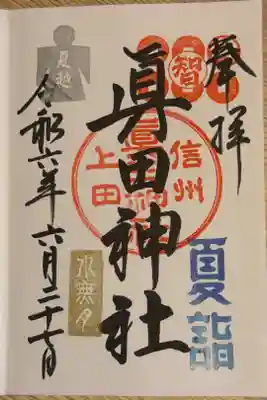 奉拝
智
夏詣
眞田神社
信州
上田
眞田神社
夏越
水無月
令和六年六月二十七日